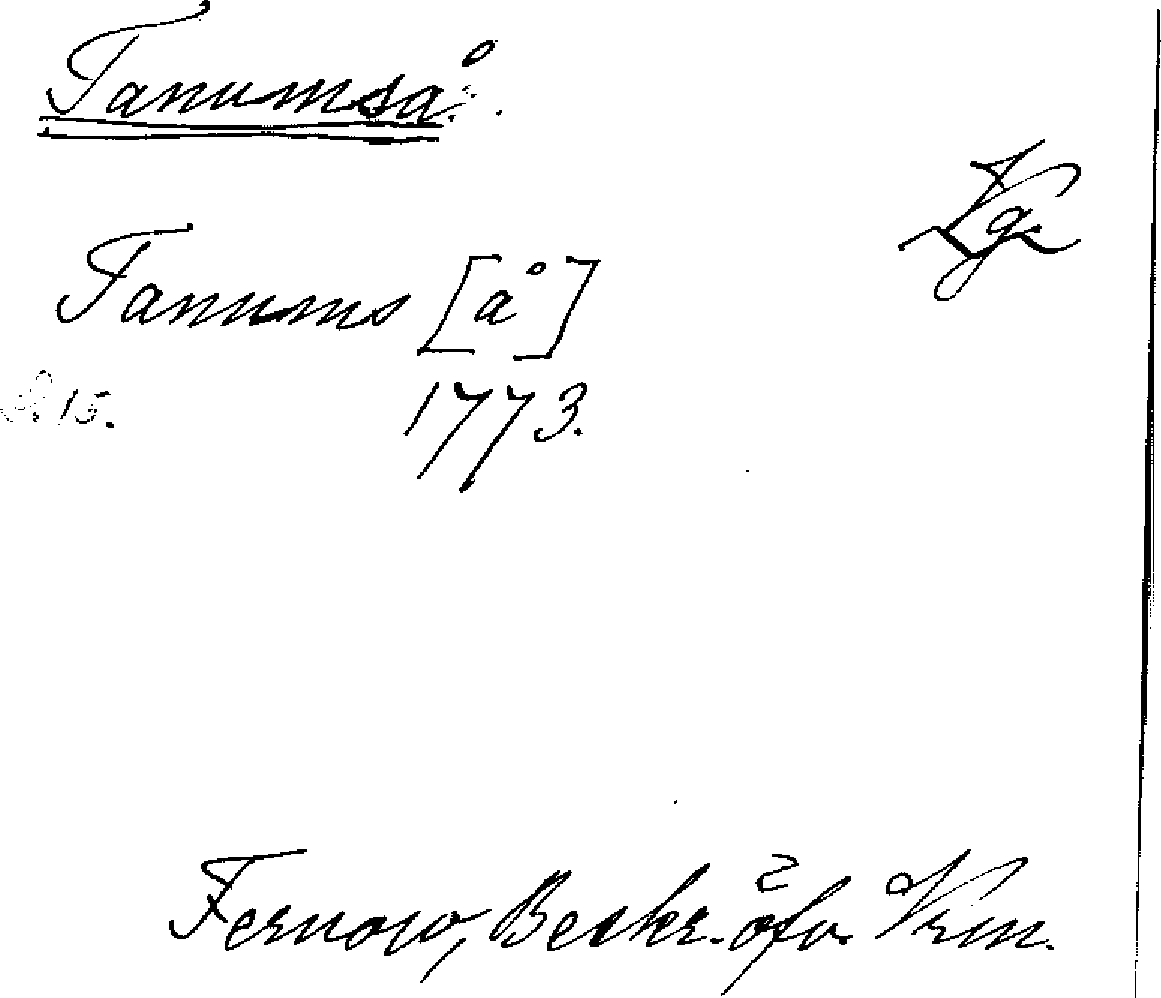 Tanumså.
Vg
Tanums [å]
S. 15. 1773.
Fernow, Beskr. öfv. Vrm.